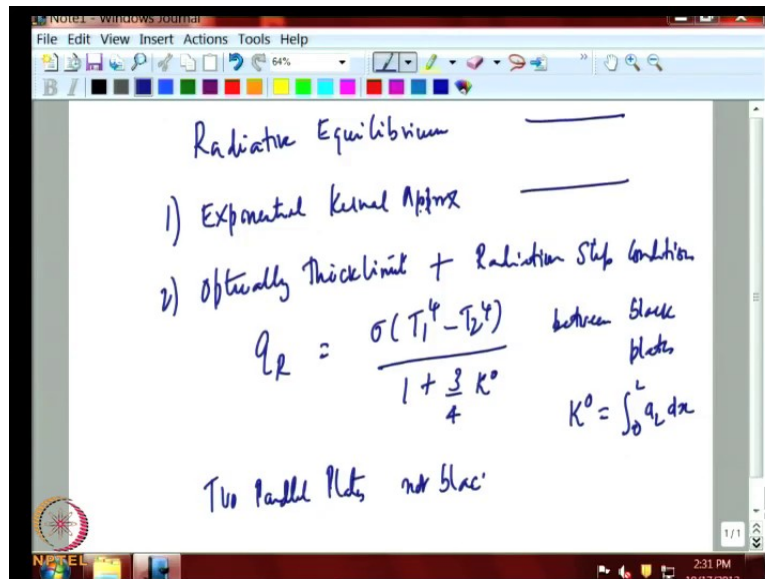 Note1 - Windows Journal
File Edit View Insert Actions Tools Help
64%
B I
Radiative Equilibrium
1) Exponential Kernel Approx
2) Optically Thick limit + Radiation Slip Condition
q_R = σ(T_1^4 - T_2^4) / (1 + 3/4 K°) between black plates
K° = ∫_0^L a_L dx
Two Parallel Plates not blac
1/1
NPTEL
2:31 PM
10/17/2012